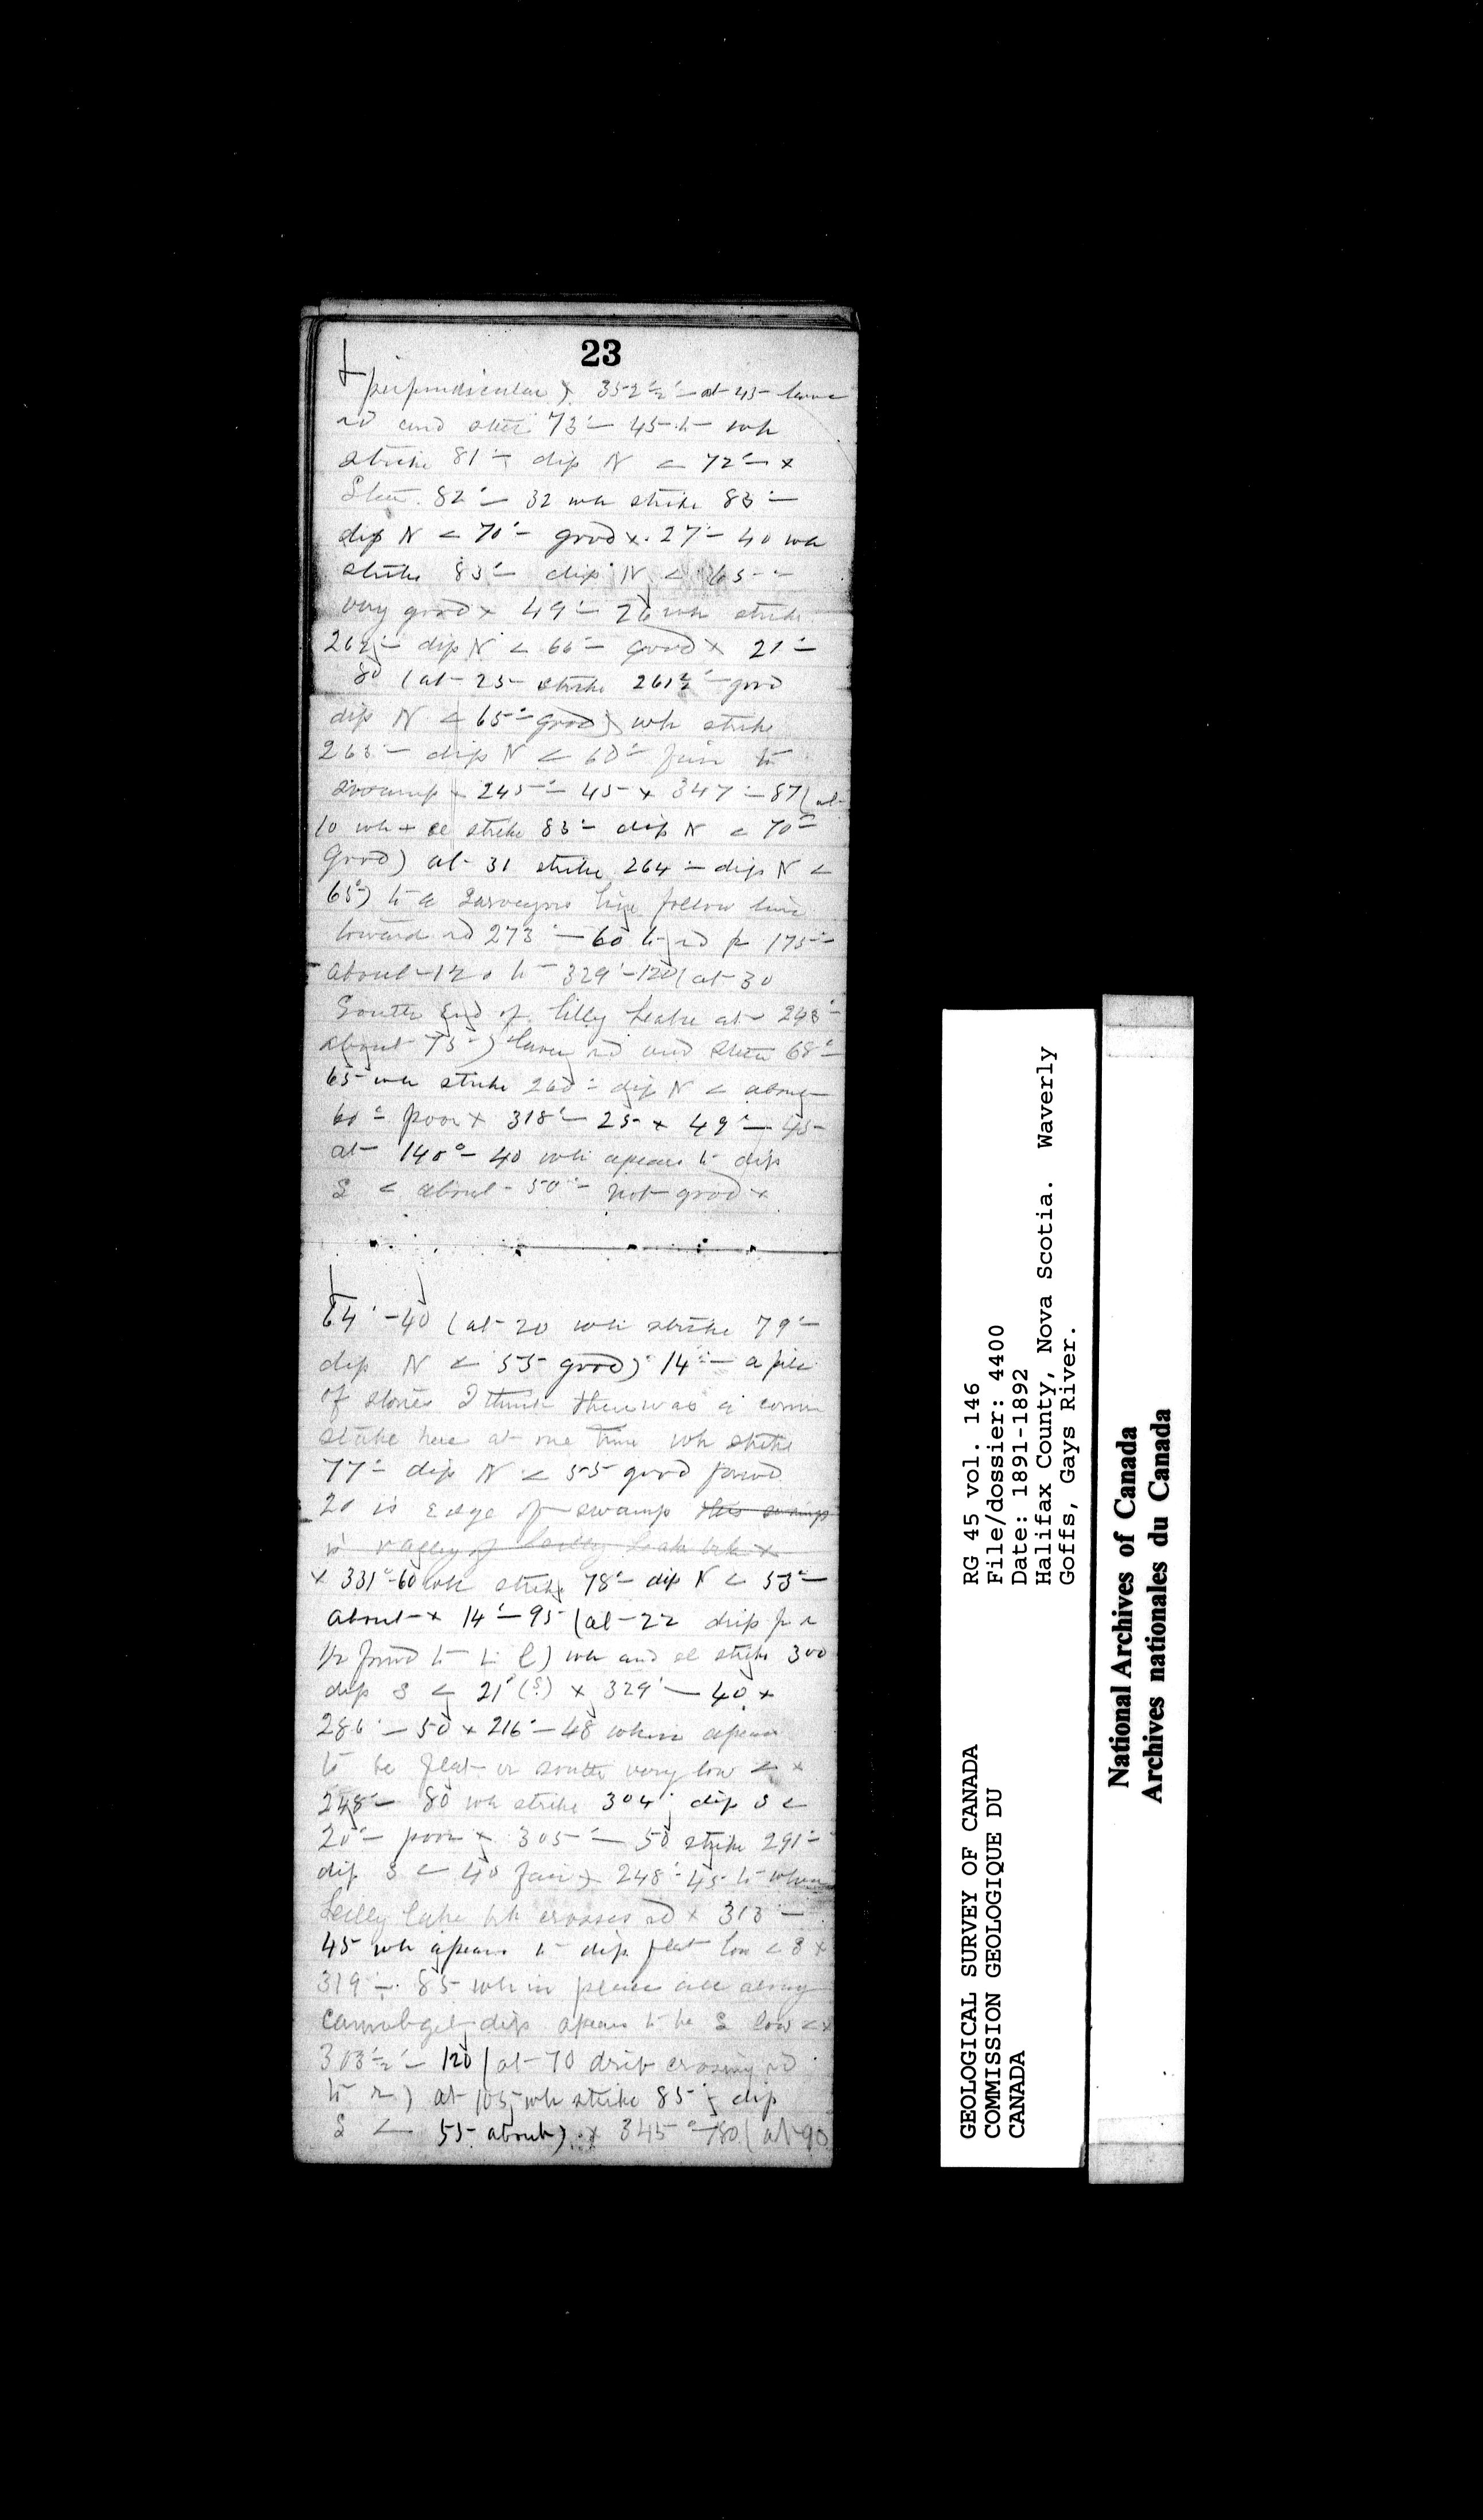 23
perpendicular) x 352½° - at 45 leave
rd and steer 73° - 45 to wh
strike 81° dip N < 72° x
Steer 82° - 32 wh strike 83° -
dip N < 70° - good x 27° - 40 wh
strike 83° - dip N < 65 -
very good x 49° - 26 wh strike
262° - dip N < 66° - good x 21° -
80 (at 25 strike 261½° - good
dip N < 65° good) wh strike
263° - dip N < 60° fair to
swamp x 245° - 45 x 347° - 87 (at
10 wh + sl strike 83° - dip N < 70°
good) at 31 strike 264° - dip N <
65°) to a Surveyors line follow line
toward rd 273° - 60 to rd 175° -
about 120 to 329° - 120 (at 30
South End of Lilly Leake at 293° -
about 75 -) leave rd and steer 68° -
65 wh strike 260° - dip N <
60° poor x 318° - 25 x 49° - 45
at 140° - 40 wh apears to dip
S < about 50° - not good x
64° - 40 (at 20 wh strike 79° -
dip N < 55 good) 14° - a pile
of stones I think there was a corner
stake here at one time wh strike
77° - dip N < 55 good forwd
20 is Edge of swamp this swamp
is valley of Leilly Leak brk x
x 331° - 60 wh strike 78° - dip N < 53° -
about x 14° - 95 (at 22
forwd to l) wh and sl strike 300
dip S < 21° (S) x 329° - 40 x
286° - 50 x 216° - 48 where apears
to be flat or south very low < x
248° - 80 wh strike 304° dip S <
20° - poor x 305° - 50 strike 291° -
dip S < 40 fair) 248° - 45 to where
Leilly Lake brk crosses rd x 313° -
45 wh apears to dip flat low < S x
319° - 85 wh in place all along
cannot get dip apears to be S low < x
303½° - 120 (at 70 crossing rd
to r) at 105 wh strike 85° dip
S < 55 about) x 345° - 180 (at 90
GEOLOGICAL SURVEY OF CANADA
COMMISSION GEOLOGIQUE DU
CANADA
RG 45 vol. 146
File/dossier: 4400
Date: 1891-1892
Halifax County, Nova Scotia. Waverly
Goffs, Gays River.
National Archives of Canada
Archives nationales du Canada